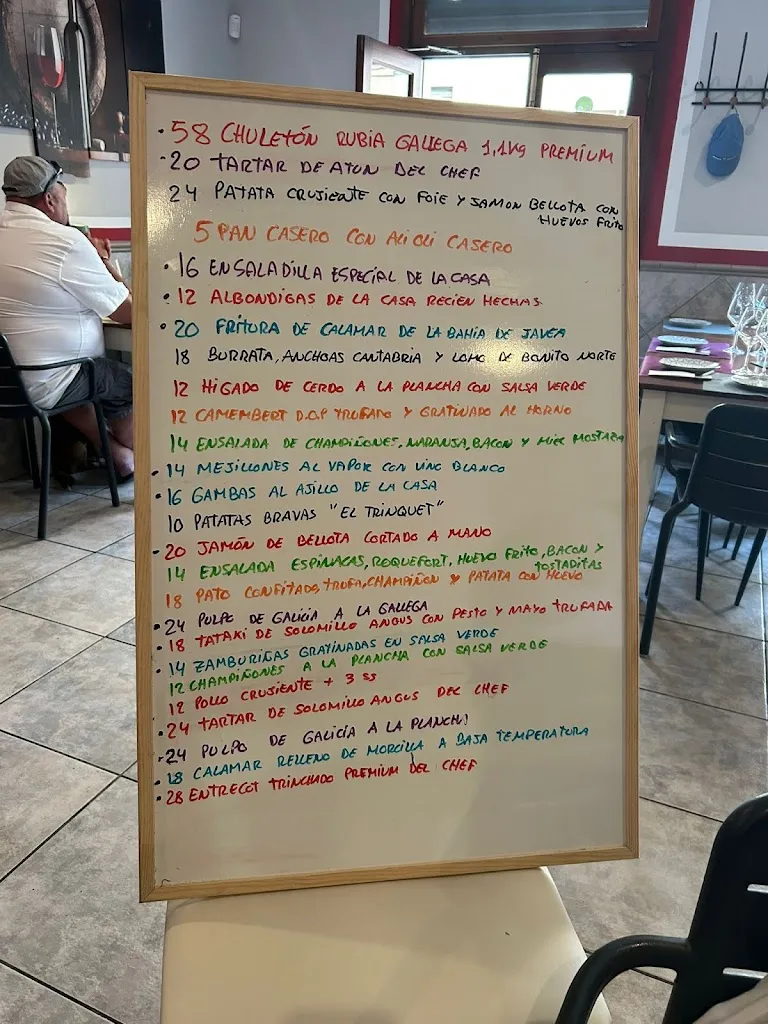 · 58 CHULETÓN RUBIA GALLEGA 1,1Kg PREMIUM
· 20 TARTAR DE ATUN DEL CHEF
24 PATATA CRUJIENTE CON FOIE Y JAMON BELLOTA CON
HUEVOS FRITO
5 PAN CASERO CON ALI OLI CASERO
· 16 ENSALADILLA ESPECIAL DE LA CASA
· 12 ALBONDIGAS DE LA CASA RECIEN HECHAS
· 20 FRITURA DE CALAMAR DE LA BAHIA DE JAVEA
18 BURRATA, ANCHOAS CANTABRIA Y LOMO DE BONITO NORTE
12 HIGADO DE CERDO A LA PLANCHA CON SALSA VERDE
12 CAMEMBERT D.O.P TRUFADO Y GRATINADO AL HORNO
14 ENSALADA DE CHAMPIÑONES, NARANJA, BACON Y MIEL MOSTAZA
· 14 MEJILLONES AL VAPOR CON VINO BLANCO
· 16 GAMBAS AL AJILLO DE LA CASA
10 PATATAS BRAVAS "EL TRINQUET"
· 20 JAMÓN DE BELLOTA CORTADO A MANO
14 ENSALADA ESPINACAS, ROQUEFORT, HUEVO FRITO, BACON Y
TOSTADITAS
18 PATO CONFITADO, TRUFA, CHAMPIÑON Y PATATA CON HUEVO
· 24 PULPO DE GALICIA A LA GALLEGA
· 18 TATAKI DE SOLOMILLO ANGUS CON PESTO Y MAYO TRUFADA
· 14 ZAMBURIÑAS GRATINADAS EN SALSA VERDE
12 CHAMPIÑONES A LA PLANCHA CON SALSA VERDE
12 POLLO CRUJIENTE + 3 SS
· 24 TARTAR DE SOLOMILLO ANGUS DEL CHEF
· 24 PULPO DE GALICIA A LA PLANCHA
· 18 CALAMAR RELLENO DE MORCILLA A BAJA TEMPERATURA
· 28 ENTRECOT TRINCHADO PREMIUM DEL CHEF